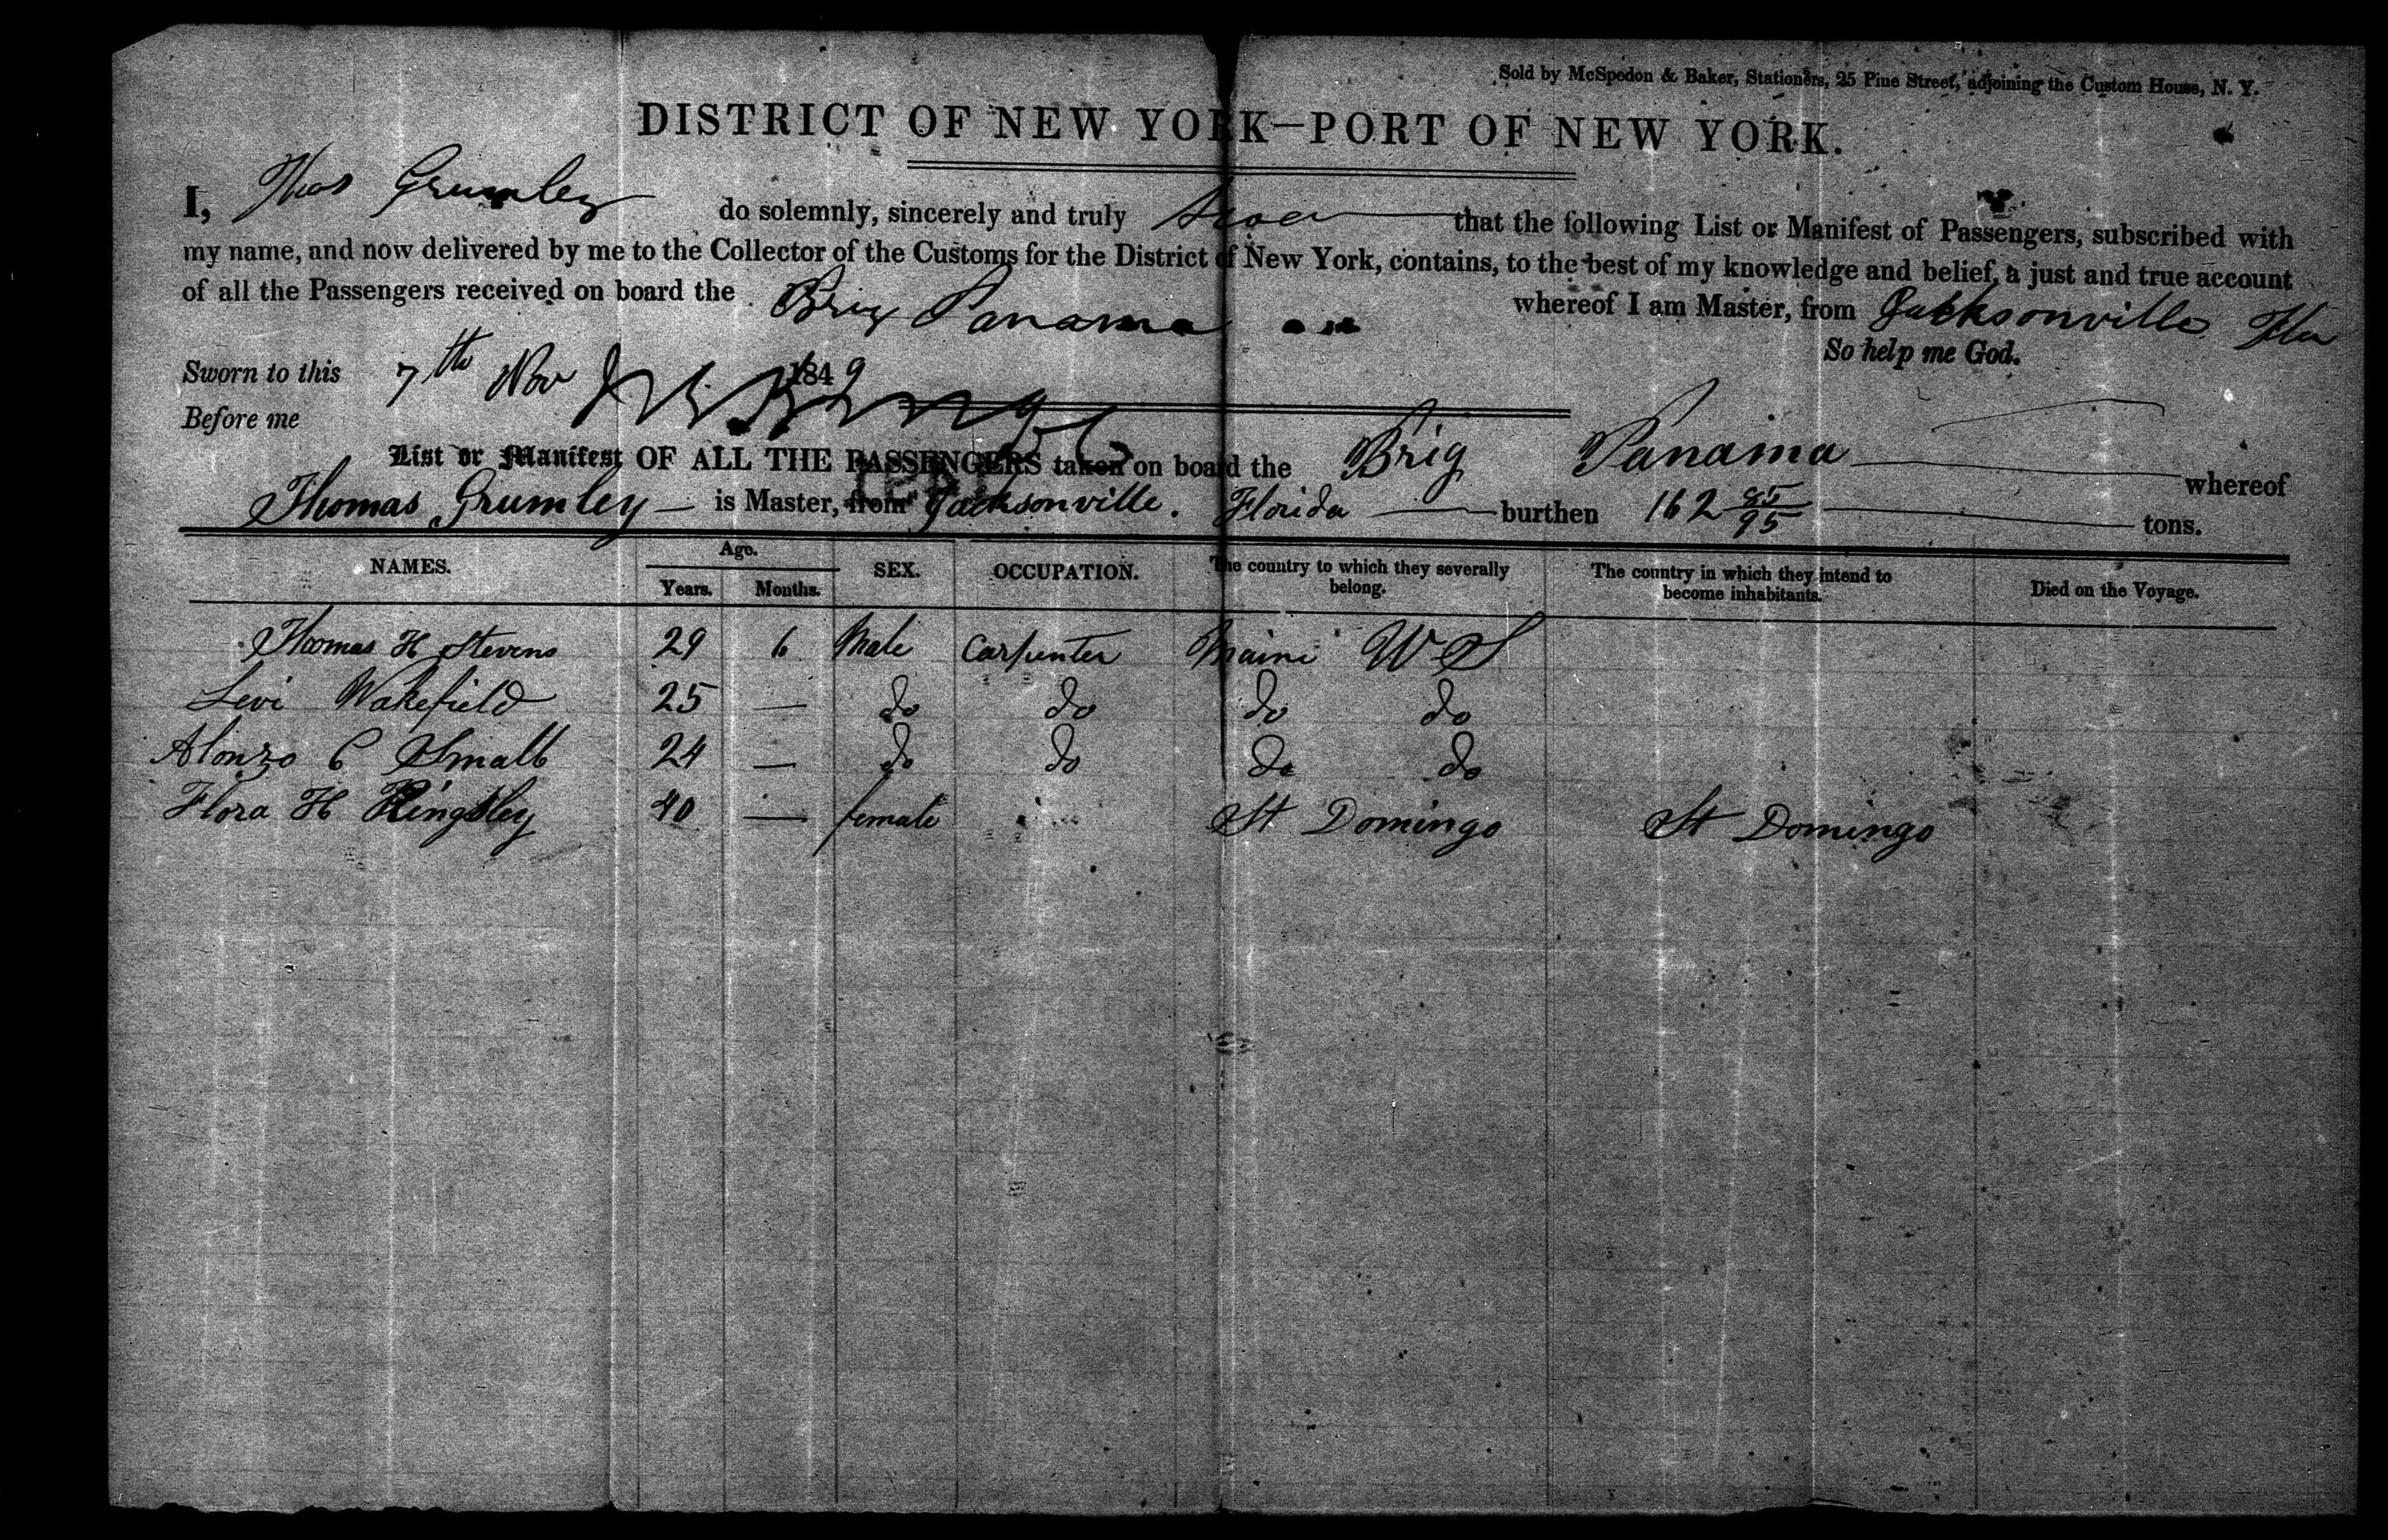 Sold by McSpedon & Baker, Stationers, 25 Pine Street, adjoining the Custom House, N. Y.
DISTRICT OF NEW YORK—PORT OF NEW YORK.
I, Thos Grumley do solemnly, sincerely and truly that the following List or Manifest of Passengers, subscribed with
my name, and now delivered by me to the Collector of the Customs for the District of New York, contains, to the best of my knowledge and belief, a just and true account
of all the Passengers received on board the Brig Panama whereof I am Master, from Jacksonville Fla
So help me God.
Sworn to this 7th Nov 1849
Before me
List or Manifest OF ALL THE PASSENGERS taken on board the Brig Panama whereof
Thomas Grumley is Master, from Jacksonville. Florida burthen 162 85/95 tons.
NAMES. Age. Years. Months. SEX. OCCUPATION. The country to which they severally belong. The country in which they intend to become inhabitants. Died on the Voyage.
Thomas H Stevens 29 6 Male Carpenter Maine
Levi Wakefield 25 — do do do do
Alonzo C Small 24 — do do do do
Flora H Kingsley 40 — female St Domingo St Domingo